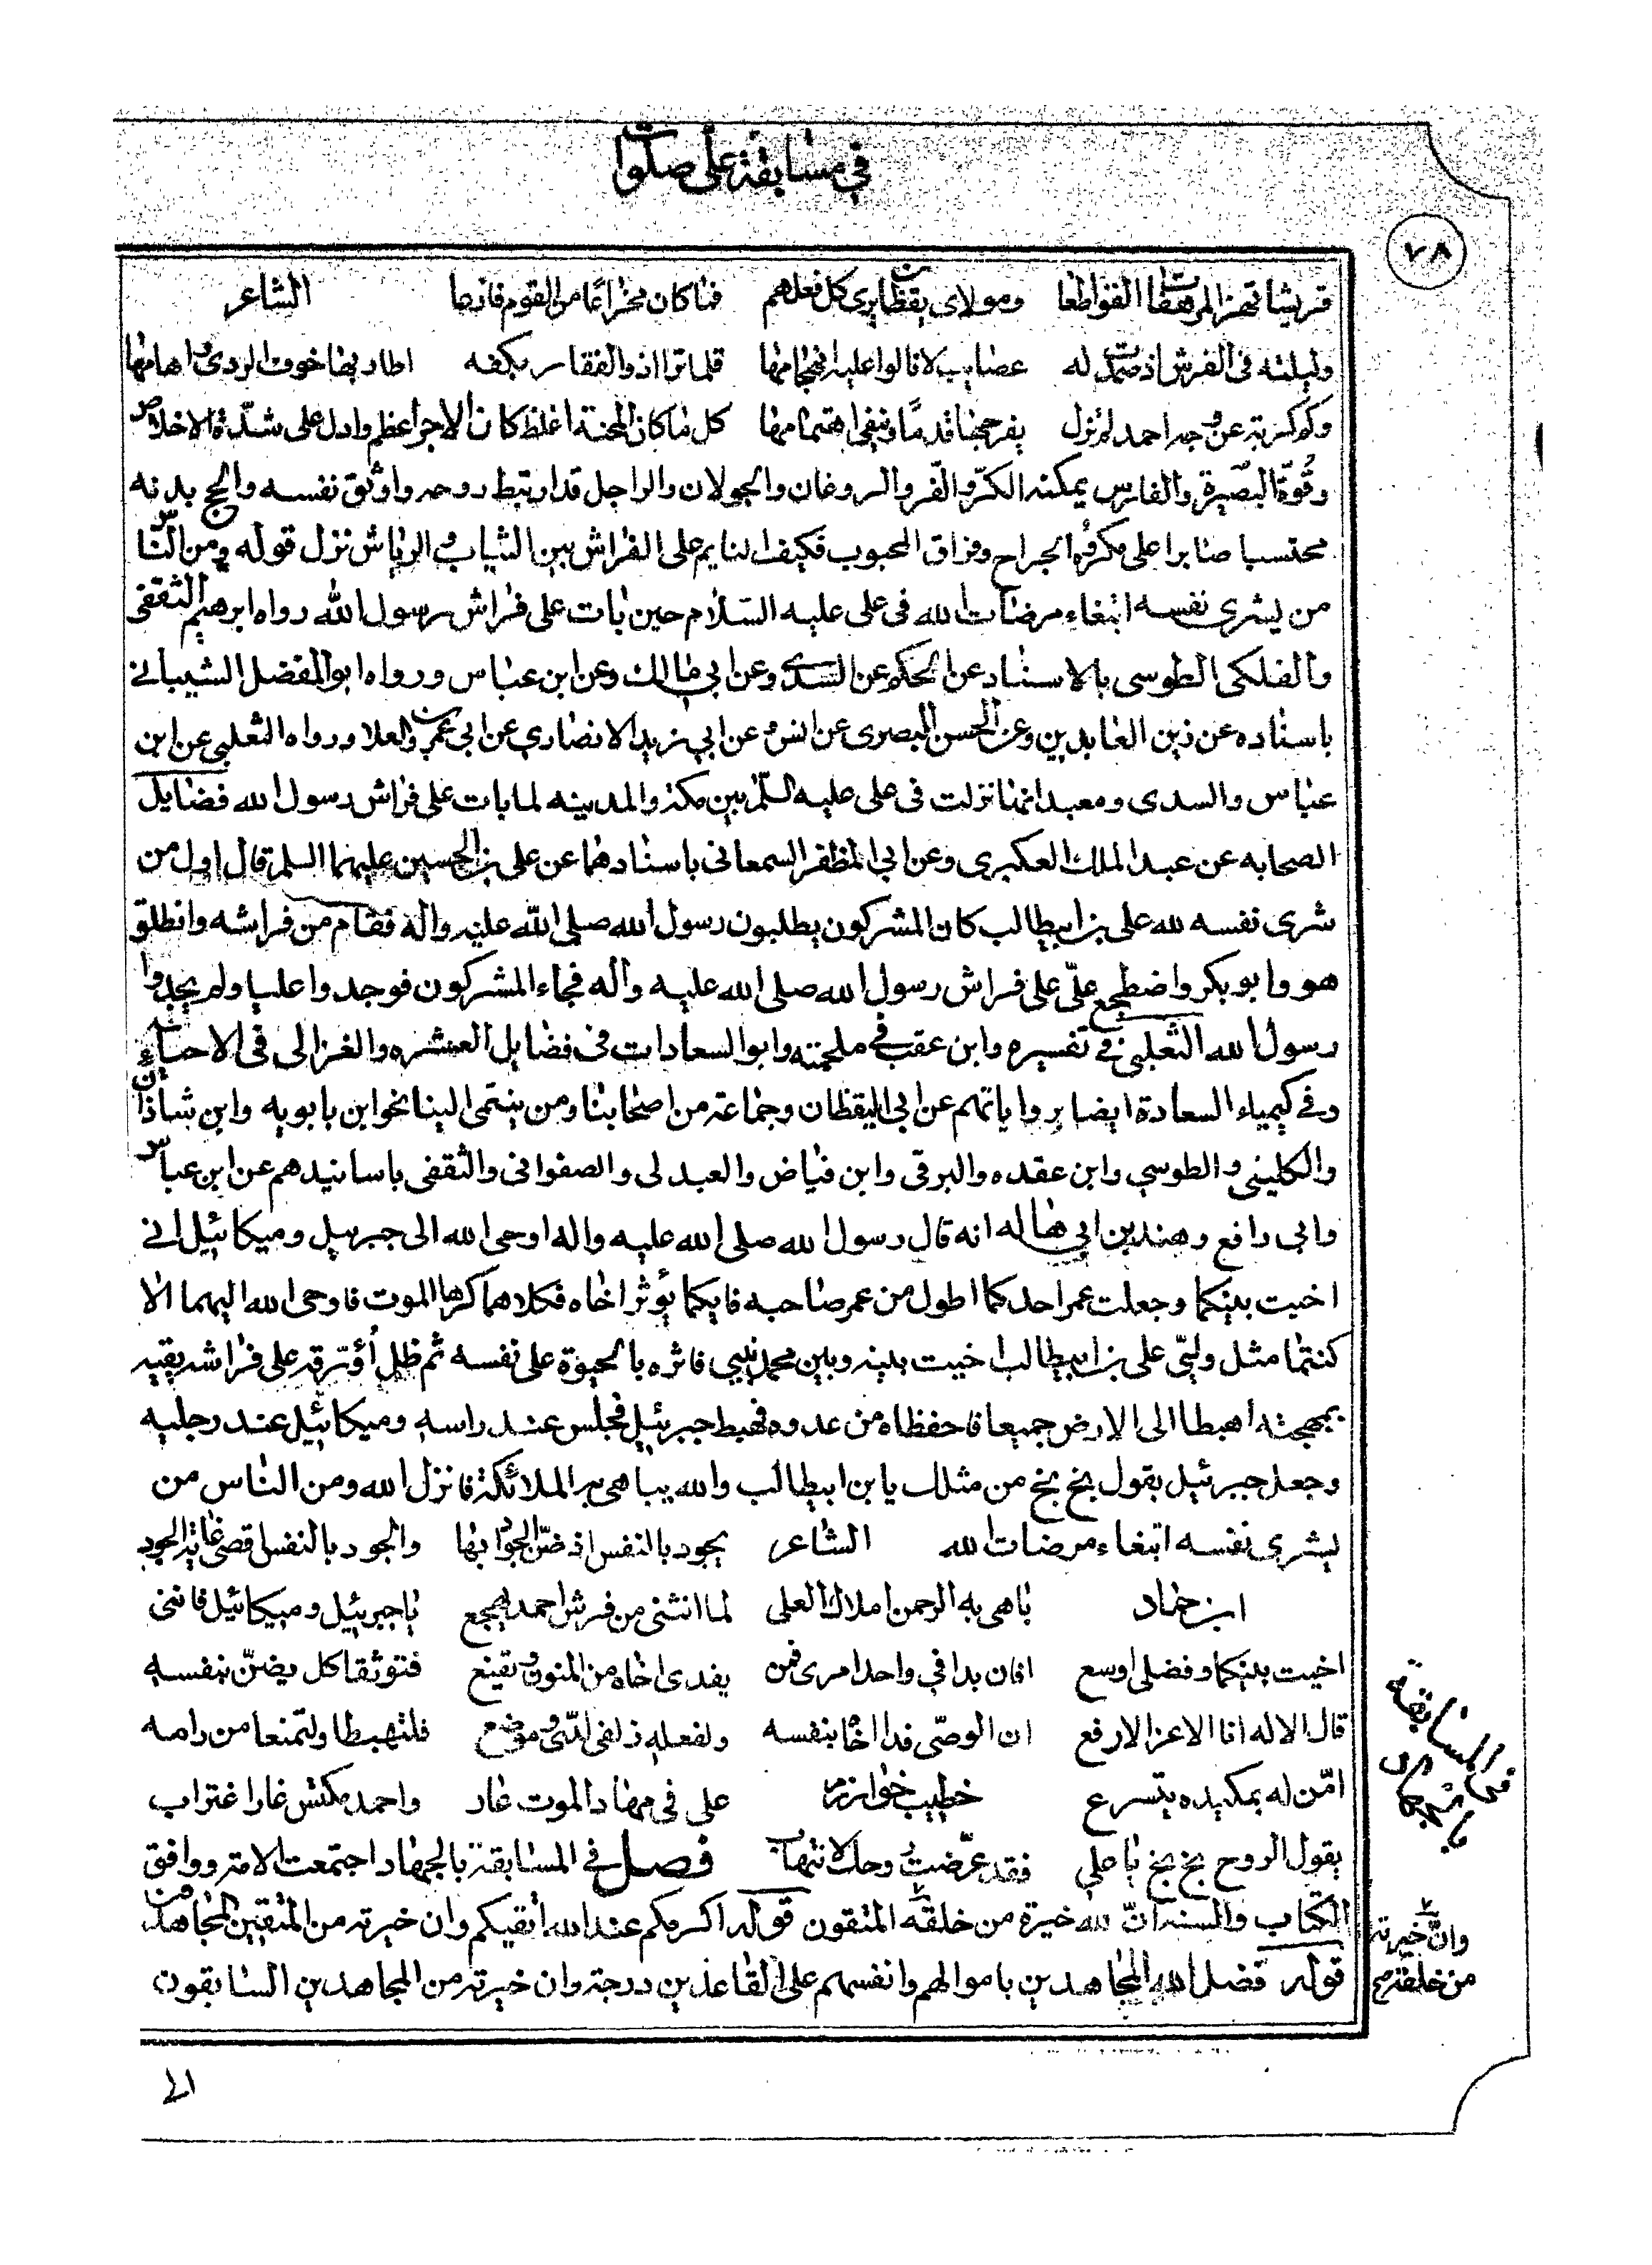 في مسابقة على صلوات
٧٨
قريشا تهز المرهفات القواطعا ومولاى يقظان يرى كل فعلهم فما كان مجزاعا من القوم فازعا الشاعر
وليلته فى الفرش اذ صمدت له عصايب لا نالوا عليه انهجامها فلما تراا ذو الفقار بكفه اطار بها خوف الردى وهامها
وكم كربة عن وجه احمد لم تزل يفرجها قدما وينفى اهتمامها كل ما كان المحنة اغلظ كان الاجر اعظم وادل على شدة الاخلاص
وقوة البصيرة والفارس يمكنه الكر والفر والروغان والجولان والراجل قد ارتبط روحه واوثق نفسه والحج بدنه
محتسبا صابرا على مكروه الجراح وفراق المحبوب فكيف النايم على الفراش بين الثياب والرياش نزل قوله ومن الناس
من يشرى نفسه ابتغاء مرضات الله فى على عليه السلام حين بات على فراش رسول الله رواه ابرهيم الثقفى
والفلكى الطوسى بالاسناد عن الحكم عن السدى وعن ابى مالك وعن ابن عباس ورواه ابو المفضل الشيبانى
باسناده عن زين العابدين وعن الحسن البصرى عن انس وعن ابى زيد الانصارى عن ابى عمرو بن العلا ورواه الثعلبى عن ابن
عباس والسدى ومعبد انها نزلت فى على عليه السلم بين مكة والمدينه لما بات على فراش رسول الله فضايل
الصحابه عن عبد الملك العكبرى وعن ابى المظفر السمعانى باسنادهما عن على بن الحسين عليهما السلم قال اول من
شرى نفسه لله على بن ابيطالب كان المشركون يطلبون رسول الله صلى الله عليه واله فقام من فراشه وانطلق
هو وابو بكر واضطجع على على فراش رسول الله صلى الله عليه واله فجاء المشركون فوجدوا عليا ولم يجدوا
رسول الله الثعلبى فى تفسيره وابن عقب فى ملحمته وابو السعادات فى فضايل العشره والغزالى فى الاحياء
وفى كيمياء السعادة ايضا برواياتهم عن ابى اليقظان وجماعة من اصحابنا ومن ينتمى الينا نحو ابن بابويه وابن شاذان
والكلينى والطوسى وابن عقده والبرقى وابن فياض والعبدلى والصفوانى والثقفى باسانيدهم عن ابن عباس
وابى رافع وهند بن ابى هاله انه قال رسول الله صلى الله عليه واله اوحى الله الى جبرييل وميكائيل انى
اخيت بينكما وجعلت عمر احدكما اطول من عمر صاحبه فايكما يؤثر اخاه فكلاهما كرها الموت فاوحى الله اليهما الا
كنتما مثل وليى على بن ابيطالب اخيت بينه وبين محمد نبيى فاثره بالحيوة على نفسه ثم ظل او رقد على فراشه يقيه
بمهجته اهبطا الى الارض جميعا فاحفظاه من عدوه فهبط جبرئيل فجلس عند راسه وميكائيل عند رجليه
وجعل جبرئيل يقول بخ بخ من مثلك يا بن ابيطالب والله يباهى به الملائكة فانزل الله ومن الناس من
يشرى نفسه ابتغاء مرضات الله الشاعر يجود بالنفس اذ ضن الجواد بها والجود بالنفس اقصى غاية الجود
ابن حماد باهى به الرحمن املاك العلى لما انثنى من فرش احمد يهجع يا جبرئيل وميكائيل فاننى
اخيت بينكما وفضلى اوسع افان بدا فى واحد امرى فمن يفدى اخاه من المنون ويقنع فتوثقا كل يضن بنفسه
قال الاله انا الاعز الارفع ان الوصى فدا اخاه بنفسه ولفعله زلفى لدى وموضع فلتهبطا ولتمنعا من رامه
امن له بمكيده يتسرع خطيب خوارزم على فى مهاد الموت عار واحمد مكتس غار اغتراب
يقول الروح بخ بخ يا على فقد عرضت روحك لانتهاب فصل فى المسابقة بالجهاد اجتمعت الامة ووافق
الكتاب والسنة ان لله خيرة من خلقه المتقون قوله اكرمكم عند الله اتقيكم وان خيرته من المتقين المجاهدون
قوله فضل الله المجاهدين باموالهم وانفسهم على القاعدين درجة وان خيرته من المجاهدين السابقون
فى المسابقة
بالجهاد
وان خيرته
من خلقه صح
الى